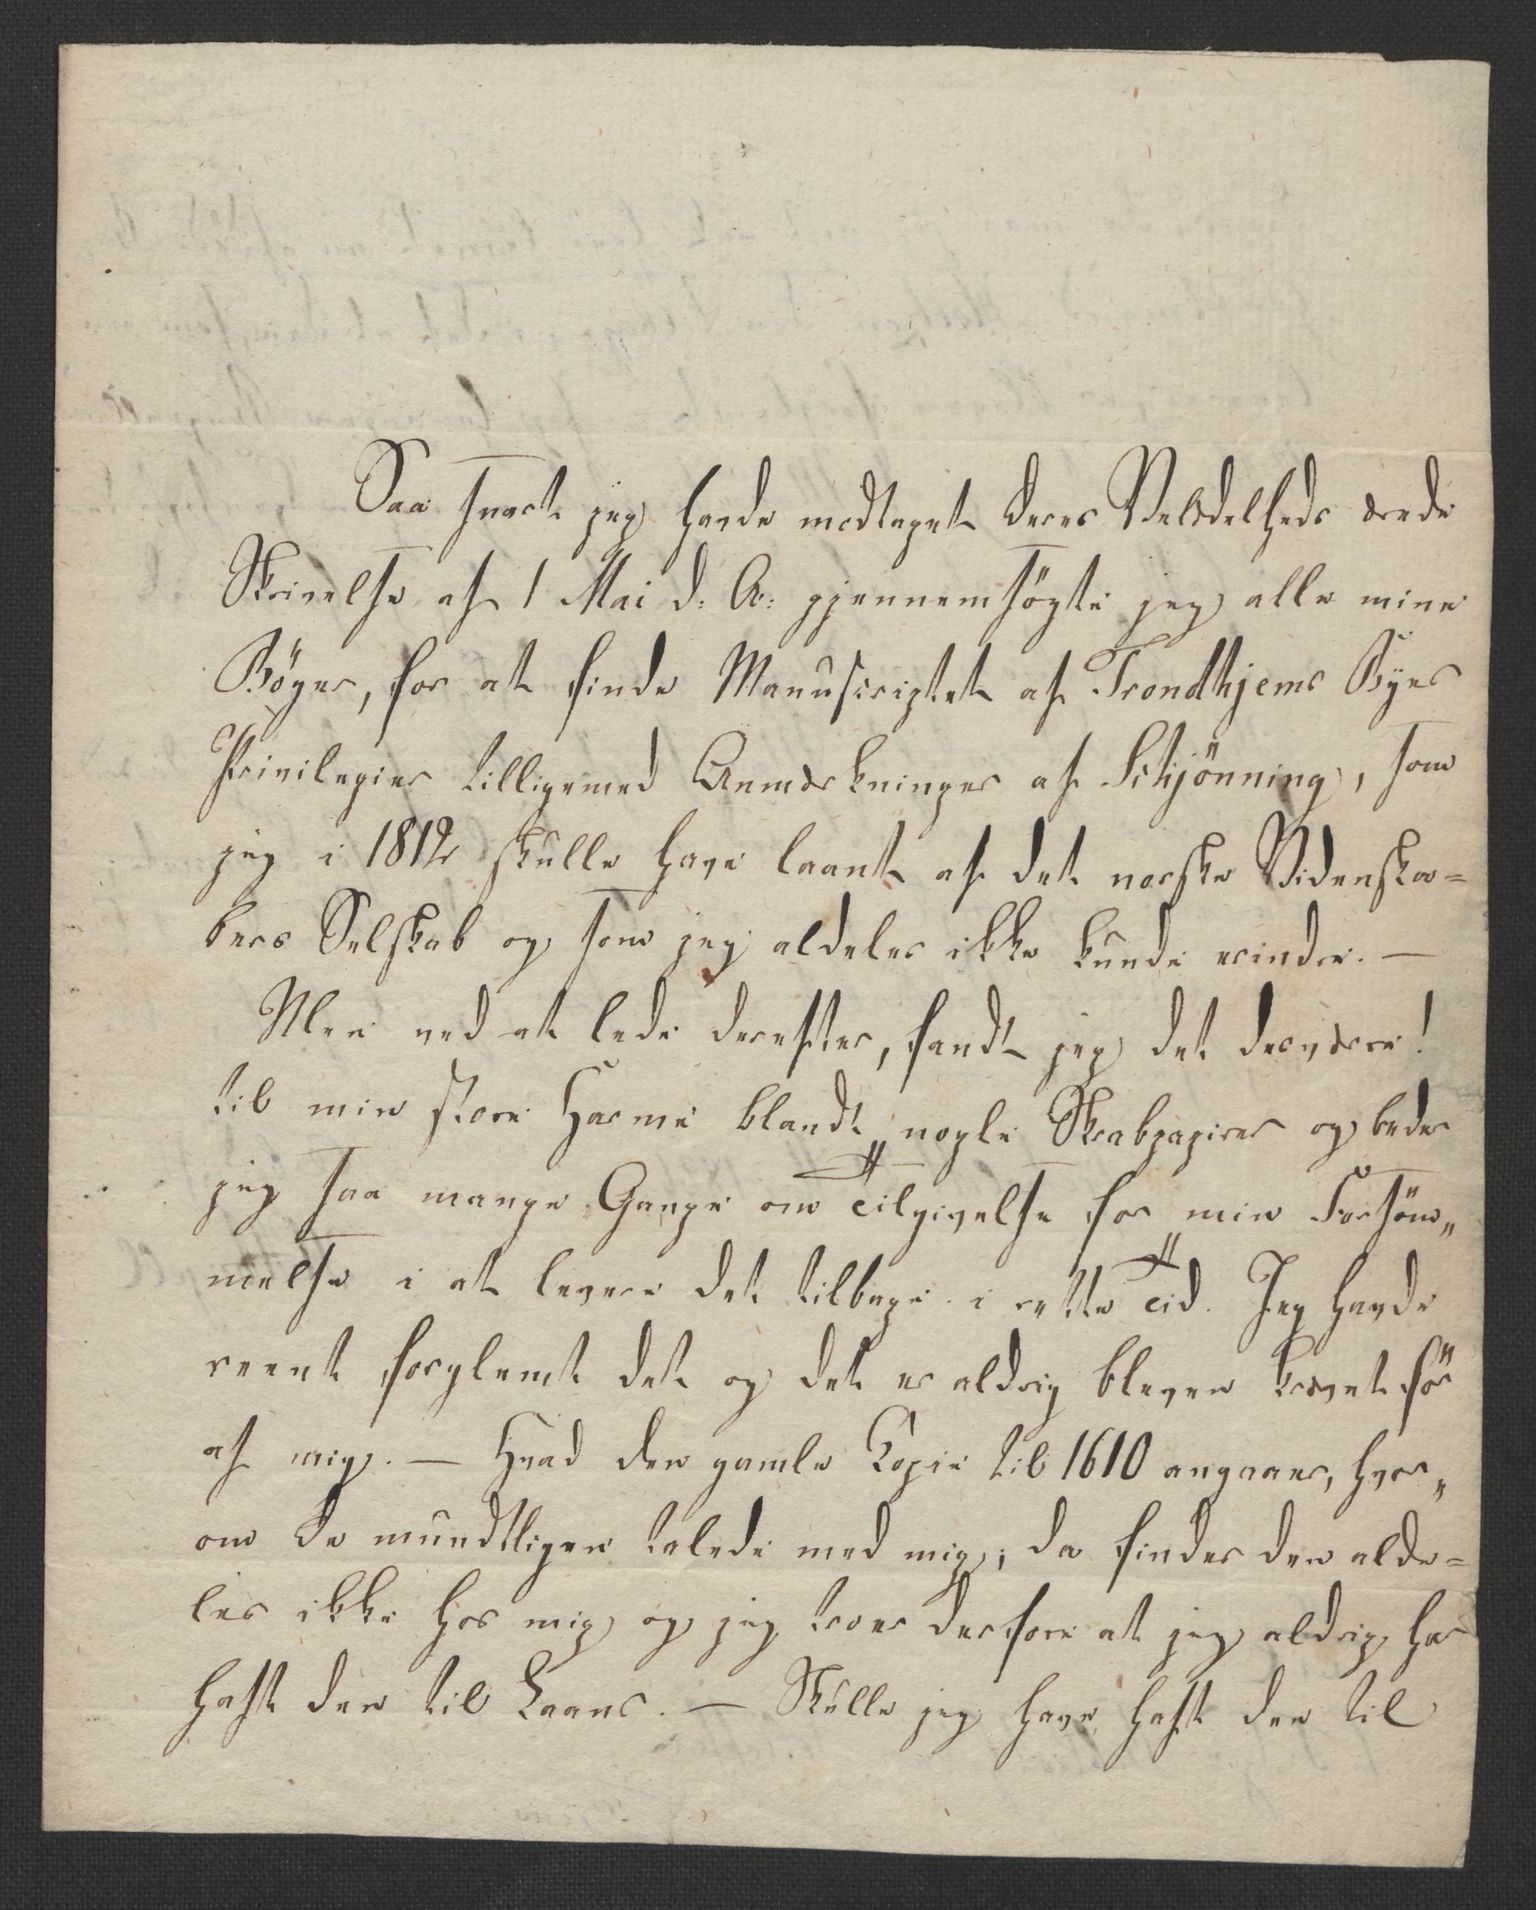 Saa snart jeg havde modtaget Deres Velædelheds ærede
Skrivelse af 1 Mai d: A: gjennemsögte jeg alle mine
Böger, for at finde Manuscriptet af Trondhjems Byes
Privilegier tilligemed Anmærkninger af Schjönning, som
jeg i 1812 skulle have laant af det norske Videnska=
bers Selskab og som jeg aldeles ikke kunde erindre. —
Men ved at lede derefter, fandt jeg det desværre!
til min store Harme blandt nogle Skrabpapirer og beder
jeg saa mange Gange om Tilgivelse for min Forsöm„
melse i at levere det tilbage i rette Tid. Jeg havde
reent forglemt det og det er aldrig bleven krævet för
af mig. — Hvad den gamle Copie til 1610 angaaer, hvor„
om De mundtligen talede med mig, da findes den alde=
les ikke hos mig og jeg troer derfore at jeg aldrig har
haft den til Laans. — Skulle jeg have haft den til